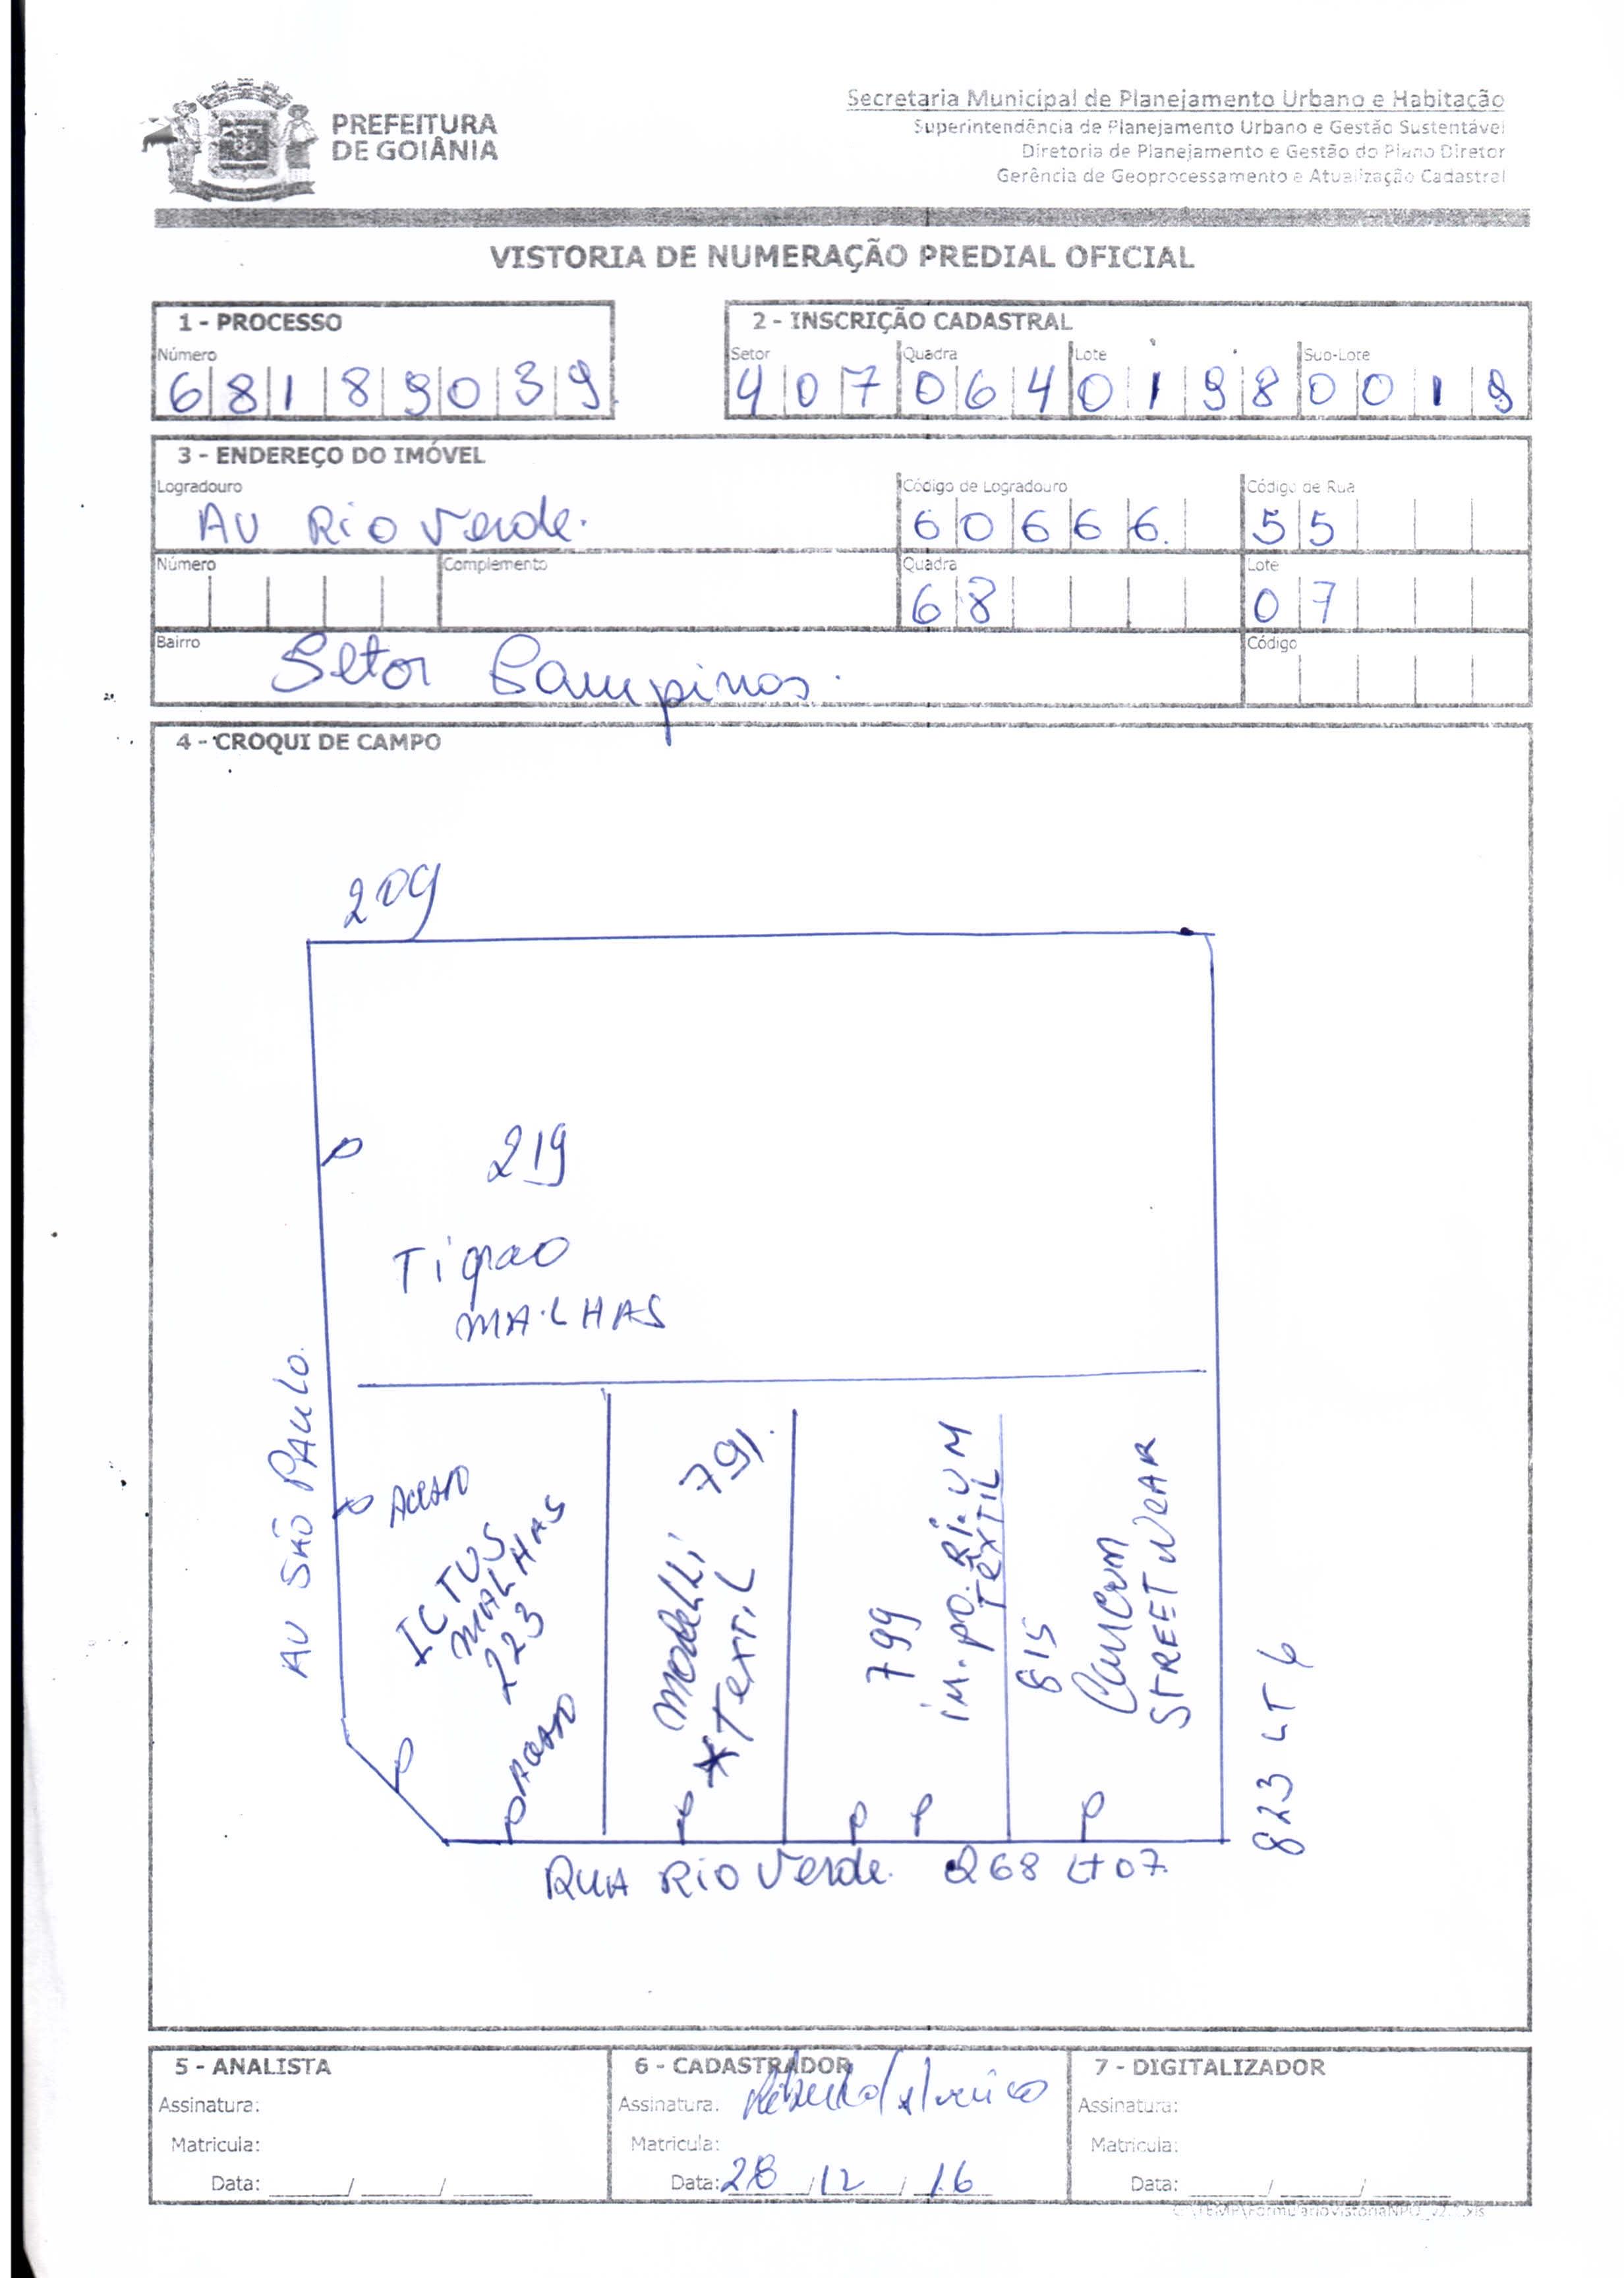 PREFEITURA
DE GOIÂNIA
Secretaria Municipal de Planejamento Urbano e Habitação
Superintendência de Planejamento Urbano e Gestão Sustentável
Diretoria de Planejamento e Gestão do Plano Diretor
Gerência de Geoprocessamento e Atualização Cadastral
VISTORIA DE NUMERAÇÃO PREDIAL OFICIAL
1 - PROCESSO
Número
6 8 1 8 9 0 3 9
2 - INSCRIÇÃO CADASTRAL
Setor Quadra Lote Sub-Lote
4 0 7 0 6 4 0 1 9 8 0 0 1 9
3 - ENDEREÇO DO IMÓVEL
Logradouro Código de Logradouro Código de Rua
AV Rio Verde. 6 0 6 6 6. 5 5
Número Complemento Quadra Lote
6 8 0 7
Bairro Código
Setor Campinas.
4 - CROQUI DE CAMPO
209
219
Tigrao
MALHAS
AV SÃO PAULO.
Acesso
ICTUS
MALHAS
223
Acesso
791.
Modelli
Textil
799
im.po.Ri.UM
TEXTIL
815
STREET WEAR
823 LT 6
RUA Rio Verde. Q68 LT 07.
5 - ANALISTA
Assinatura:
Matricula:
Data: ____/____/____
6 - CADASTRADOR
Assinatura:
Matricula:
Data: 28/12/16
7 - DIGITALIZADOR
Assinatura:
Matricula:
Data: ____/____/____